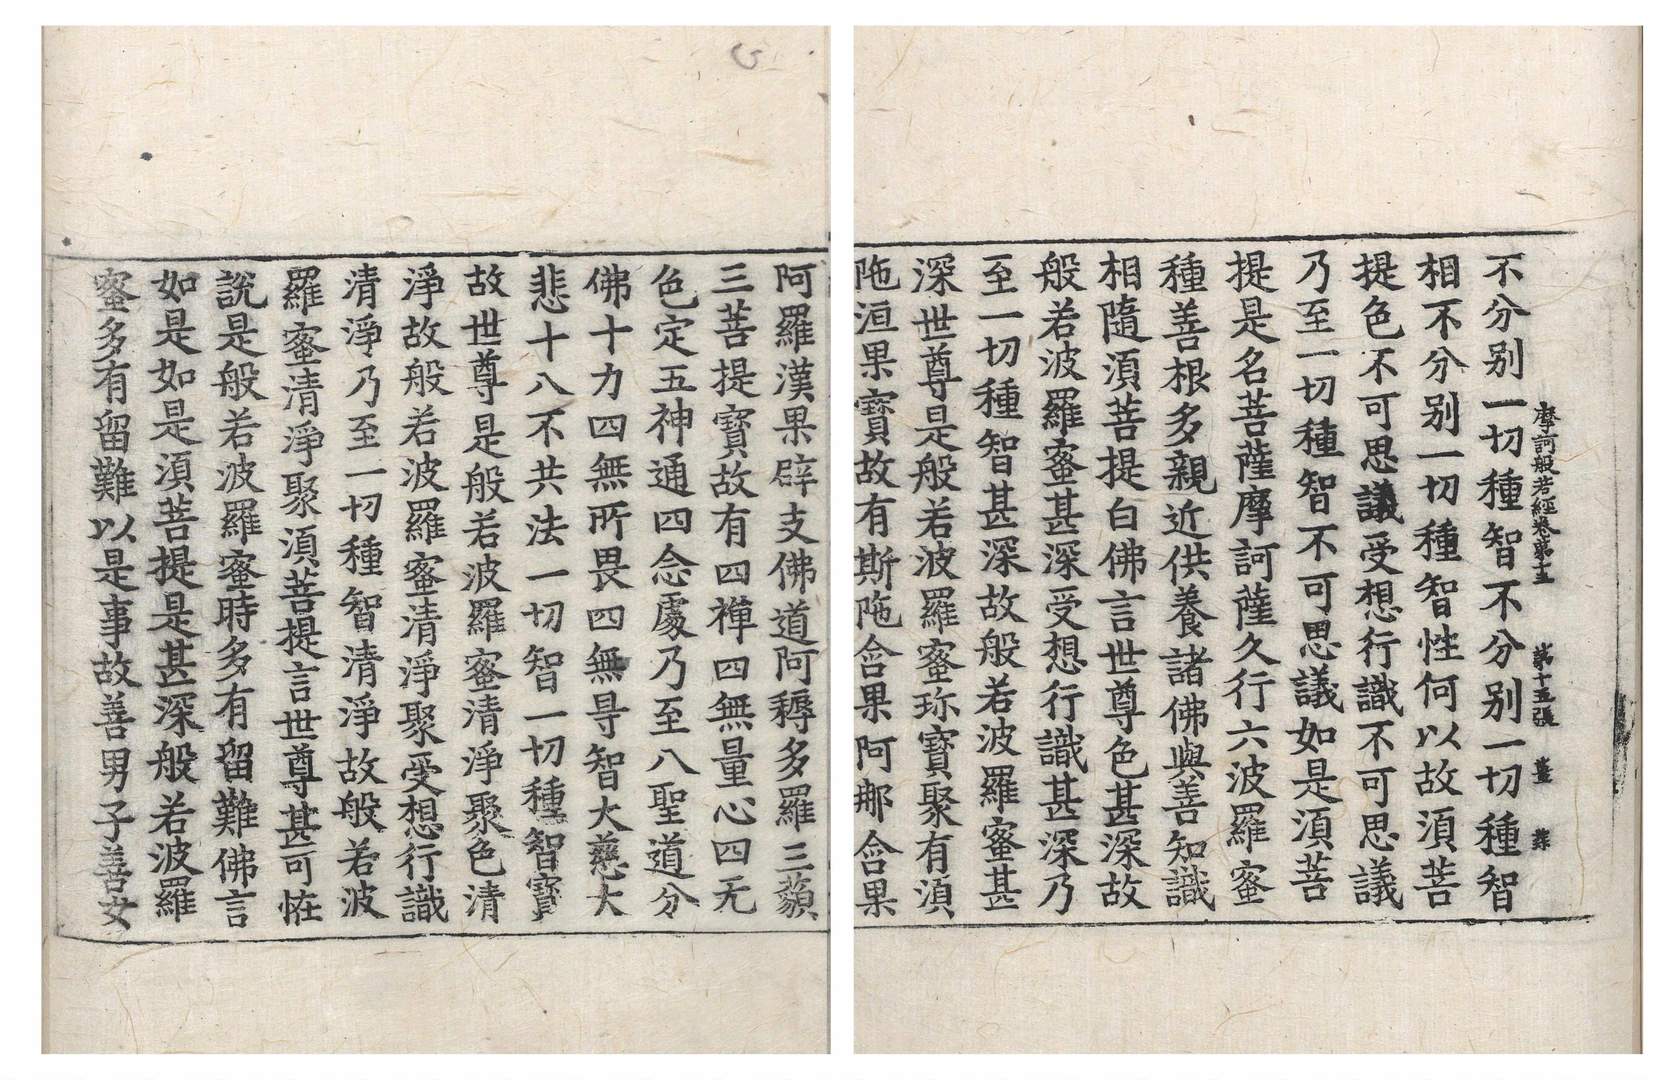 摩訶般若經卷第十五 第十五張 薑 菜
不分别一切種智不分别一切種智
相不分别一切種智性何以故須菩
提色不可思議受想行識不可思議
乃至一切種智不可思議如是須菩
提是名菩薩摩訶薩久行六波羅蜜
種善根多親近供養諸佛與善知識
相隨須菩提白佛言世尊色甚深故
般若波羅蜜甚深受想行識甚深乃
至一切種智甚深故般若波羅蜜甚
深世尊是般若波羅蜜珎寶聚有須
陁洹果寶故有斯陁含果阿那含果
阿羅漢果辟支佛道阿耨多羅三藐
三菩提寶故有四禪四無量心四无
色定五神通四念處乃至八聖道分
佛十力四無所畏四無㝵智大慈大
悲十八不共法一切智一切種智寶
故世尊是般若波羅蜜清淨聚色清
淨故般若波羅蜜清淨聚受想行識
清淨乃至一切種智清淨故般若波
羅蜜清淨聚須菩提言世尊甚可恠
說是般若波羅蜜時多有留難佛言
如是如是須菩提是甚深般若波羅
蜜多有留難以是事故善男子善女